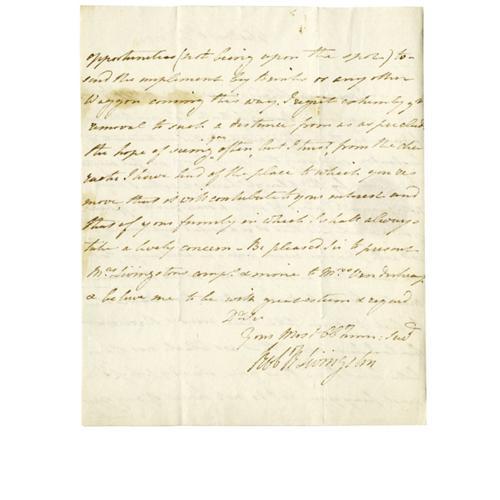 opportunities (not being upon the spot) to
send the implement by Kemble or any other
Waggon coming this way. I regret extremely yr
removal to such a distance from us as precludes
the hope of seeing you often, but I trust, from the
I have had of the place to which you re
move, that it will contribute to your interest and
that of your family in which I shall always
take a lively concern - Be pleased Sir to present
Mrs Livingstons compts & mine to Mrs
& believe me to be with great esteem & regard
Dr Sir
Your Most Ob Hum: Servt
Robt R Livingston